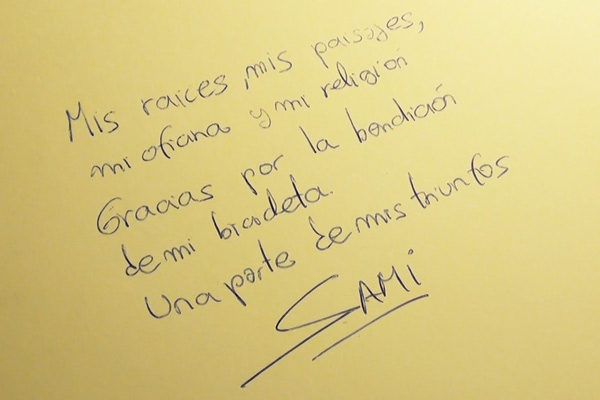 Mis raices, mis paisajes,
mi oficina y mi religión
Gracias por la bendición
de mi bicicleta.
Una parte de mis triunfos
SAMi